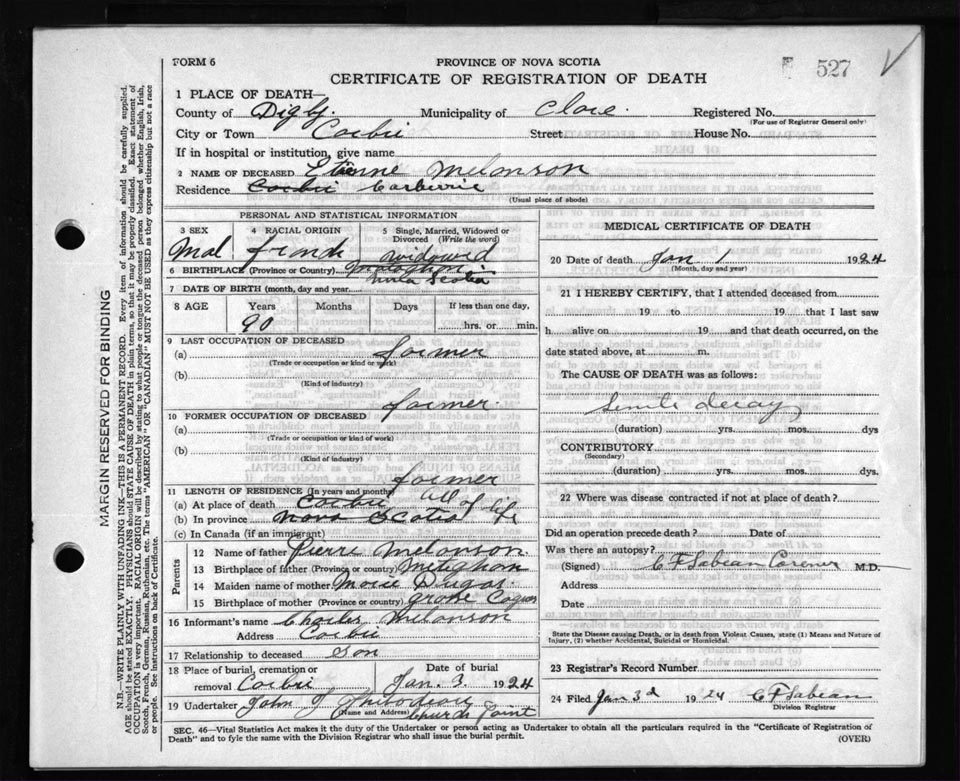 FORM 6
PROVINCE OF NOVA SCOTIA
527
CERTIFICATE OF REGISTRATION OF DEATH
1 PLACE OF DEATH—
County of Digby Municipality of Clare Registered No.
(For use of Registrar General only)
City or Town Corbrie Street House No.
If in hospital or institution, give name
2 NAME OF DECEASED Etienne Melonson
Residence Corbrie Carberrie
(Usual place of abode)
PERSONAL AND STATISTICAL INFORMATION
3 SEX 4 RACIAL ORIGIN 5 Single, Married, Widowed or Divorced (Write the word)
Mal french widowed
6 BIRTHPLACE (Province or Country) Nova Scotia
7 DATE OF BIRTH (month, day and year)
8 AGE Years Months Days If less than one day,
90 hrs. or min.
9 LAST OCCUPATION OF DECEASED
(a) former
(Trade or occupation or kind of work)
(b)
(Kind of industry)
10 FORMER OCCUPATION OF DECEASED former
(a)
(Trade or occupation or kind of work)
(b)
(Kind of industry)
former
11 LENGTH OF RESIDENCE (In years and months)
(a) At place of death Corbrie all of life
(b) In province Nova Scotia
(c) In Canada (if an immigrant)
Parents
12 Name of father Pierre Melonson
13 Birthplace of father (Province or country) Metighan
14 Maiden name of mother Marie Dugas
15 Birthplace of mother (Province or country) grose Coques
16 Informant's name Charles Melonson
Address Corbrie
17 Relationship to deceased Son
18 Place of burial, cremation or removal Corbrie Date of burial Jan. 3. 1924
19 Undertaker John J
(Name and Address) Church Point
MEDICAL CERTIFICATE OF DEATH
20 Date of death Jan 1 1924
(Month, day and year)
21 I HEREBY CERTIFY, that I attended deceased from
19 to 19 that I last saw
h alive on 19 and that death occurred, on the
date stated above, at m.
The CAUSE OF DEATH was as follows:
Senile decay
(duration) yrs. mos. dys
CONTRIBUTORY
(Secondary)
(duration) yrs. mos. dys.
22 Where was disease contracted if not at place of death?
Did an operation precede death? Date of
Was there an autopsy?
(Signed) C F Sabean Coroner M.D.
Address
Date
State the Disease causing Death, or in death from Violent Causes, state (1) Means and Nature of
Injury, (2) whether Accidental, Suicidal or Homicidal.
23 Registrar's Record Number
24 Filed Jan 3d 1924 C F Sabean
Division Registrar
SEC. 46—Vital Statistics Act makes it the duty of the Undertaker or person acting as Undertaker to obtain all the particulars required in the "Certificate of Registration of
Death" and to fyle the same with the Division Registrar who shall issue the burial permit.
(OVER)
MARGIN RESERVED FOR BINDING
N.B.—WRITE PLAINLY WITH UNFADING INK—THIS IS A PERMANENT RECORD. Every item of information should be carefully supplied.
AGE should be stated EXACTLY. PHYSICIANS should STATE CAUSE OF DEATH in plain terms, so that it may be properly classified. Exact statement of
OCCUPATION is very important. RACIAL ORIGIN will be described by stating to what people or tongue the deceased person belonged whether English, Irish,
Scotch, French, German, Russian, Ruthenian, etc. The terms "AMERICAN" OR "CANADIAN" MUST NOT BE USED as they express citizenship but not a race
or people. See instructions on back of Certificate.